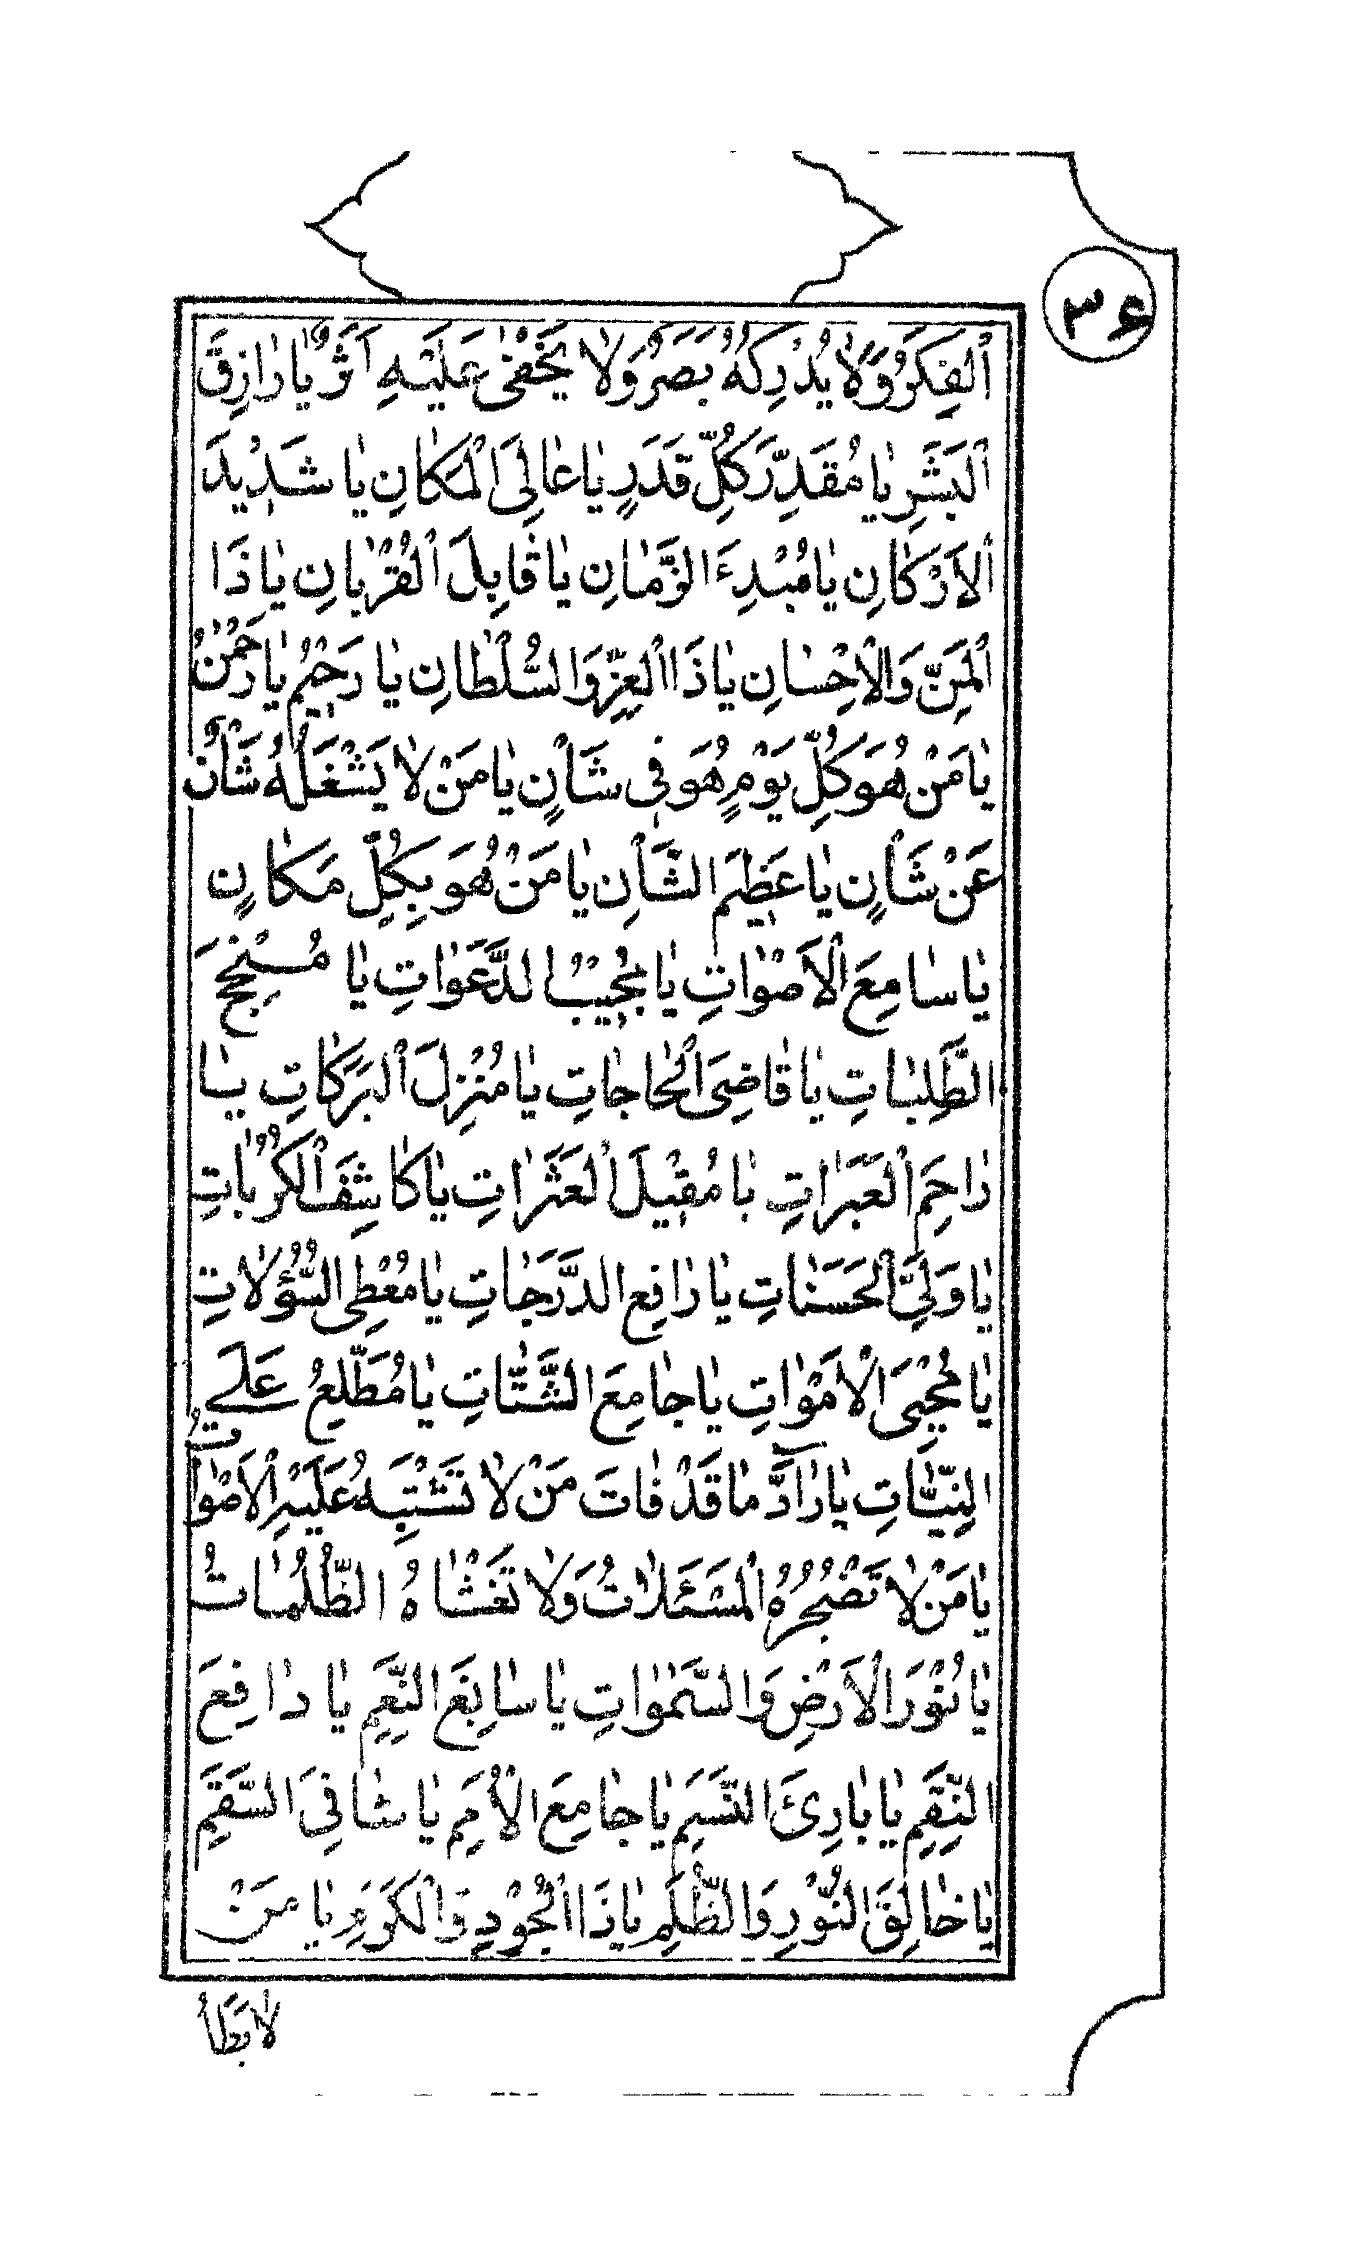 ۳۶
اَلْفِكَرُ وَلَا يُدْرِكُهُ بَصَرٌ وَلَا يَخْفىٰ عَلَيْهِ اَثَرٌ يَا رَازِقَ
اَلْبَشَرِ يَا مُقَدِّرَ كُلِّ قَدَرٍ يَا عَالِىَ الْمَكَانِ يَا شَدِيدَ
اَلْاَرْكَانِ يَا مُبْدِءَ الزَّمَانِ يَا قَابِلَ الْقُرْبَانِ يَا ذَا
الْمَنِّ وَالْاِحْسَانِ يَا ذَا الْعِزِّ وَالسُّلْطَانِ يَا رَحِيْمُ يَا رَحْمٰنُ
يَا مَنْ هُوَ كُلِّ يَوْمٍ هُوَ فِى شَأْنٍ يَا مَنْ لَا يَشْغَلُهُ شَأْنٌ
عَنْ شَأْنٍ يَا عَظِيمَ الشَّأنِ يَا مَنْ هُوَ بِكُلِّ مَكَانٍ
يَا سَامِعَ الْاَصْوَاتِ يَا مُجِيْبَ الدَّعَوَاتِ يَا مُنْجِحَ
الطَّلِبَاتِ يَا قَاضِىَ الْحَاجَاتِ يَا مُنْزِلَ الْبَرَكَاتِ يَا
رَاحِمَ الْعَبَرَاتِ يَا مُقِيْلَ الْعَثَرَاتِ يَا كَاشِفَ الْكُرُبَاتِ
يَا وَلِىَّ الْحَسَنَاتِ يَا رَافِعَ الدَّرَجَاتِ يَا مُعْطِى السُّؤُلَاتِ
يَا مُحْيِىَ الْاَمْوَاتِ يَا جَامِعَ الشَّتَّاتِ يَا مُطَّلِعُ عَلَے
النِّيَّاتِ يَا رَآدَّ مَا قَدْ فَاتَ مَنْ لَا تَشْتَبِهُ عَلَيْهِ الْاَصْوَاتُ
يَا مَنْ لَا تَضْجُرُهُ الْمَسْئَلَاتُ وَلَا تَغْشَاهُ الظُّلُمَاتُ
يَا نُوْرَ الْاَرْضِ وَالسَّمٰوَاتِ يَا سَابِغَ النِّعَمِ يَا دَافِعَ
النِّقَمِ يَا بَارِئَ النَّسَمِ يَا جَامِعَ الْاُمَمِ يَا شَافِىَ السَّقَمِ
يَا خَالِقَ النُّوْرِ وَالظُّلَمِ يَا ذَا الْجُوْدِ وَالْكَرَمِ يَا مَنْ
لَا يَطَأُ